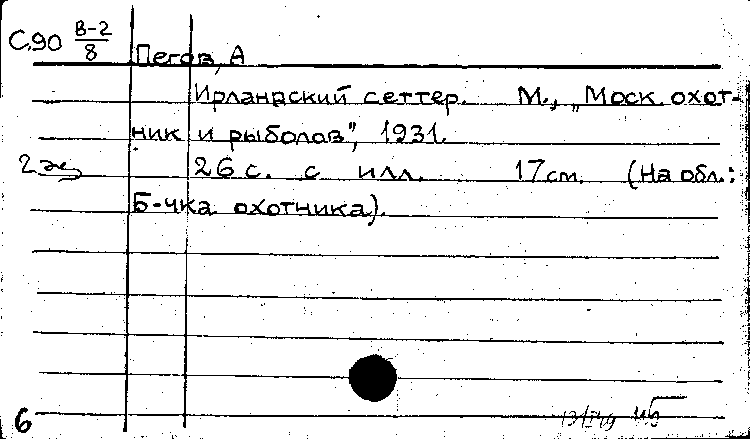 С.90 В-2/8
Пегов, А
Ирландский сеттер. М., „Моск. охот-
ник и рыболов", 1931.
2 эк 26 с. с илл. 17 см. (На обл.:
Б-чка охотника).
6